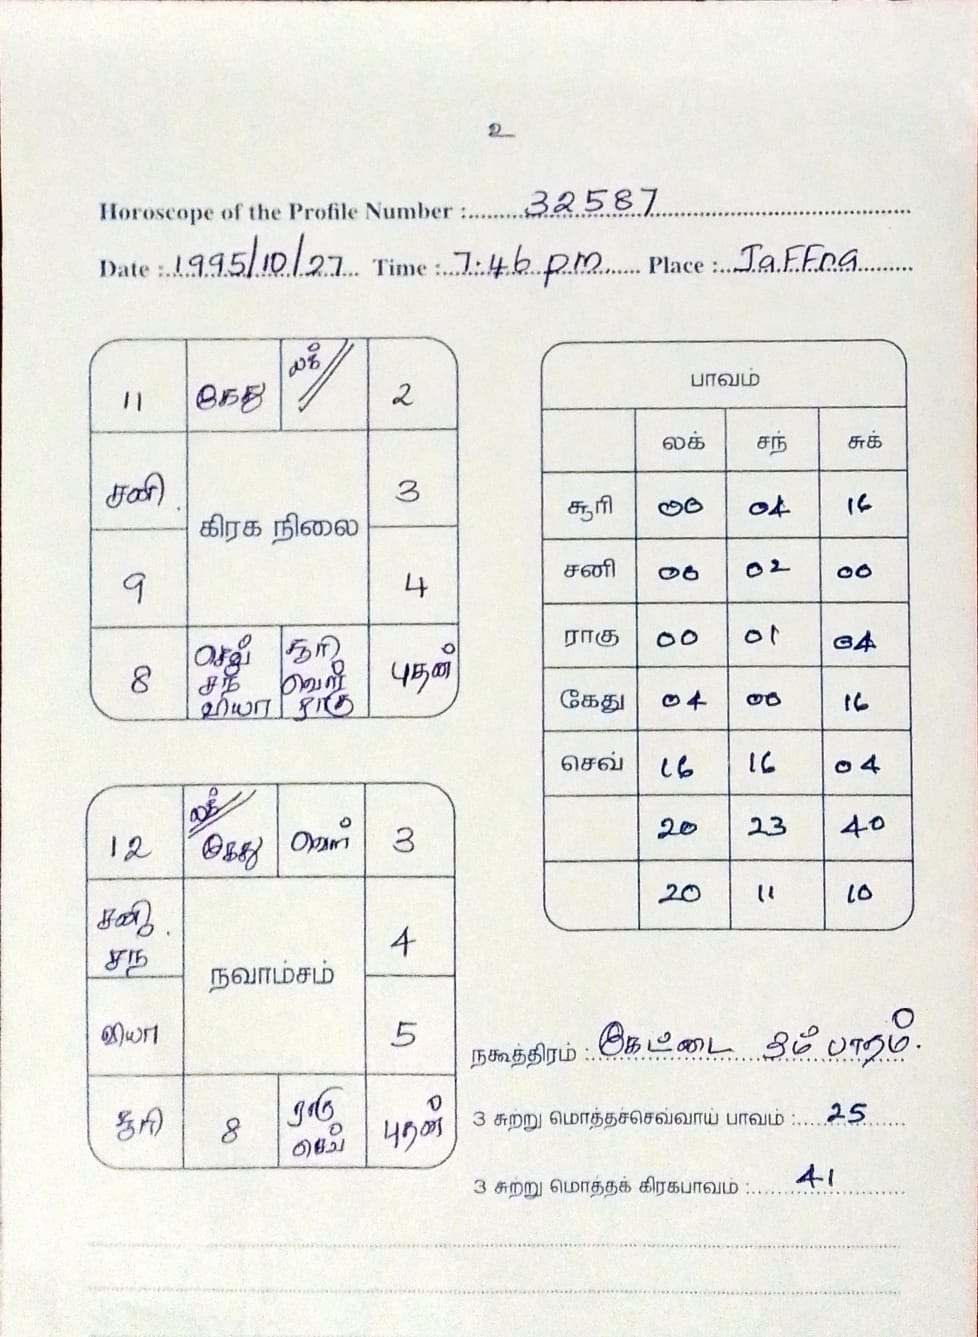 உ
Horoscope of the Profile Number : 32587
Date : 1995/10/27 Time : 7:46 pm Place : Jaffna
11 கேது லக் 2
சனி 3
கிரக நிலை
9 4
8 செவ் சந் வியா சூரி வெள் ராகு புதன்
பாவம்
லக் சந் சுக்
சூரி 00 04 16
சனி 00 02 00
ராகு 00 01 04
கேது 04 00 16
செவ் 16 16 04
20 23 40
20 11 10
12 லக் கேது வெள் 3
சனி சந் 4
நவாம்சம்
வியா 5
சூரி 8 ராகு செவ் புதன்
நகூத்திரம் : கேட்டை 3ம் பாதம்.
3 சுற்று மொத்தச்செவ்வாய் பாவம் : 25
3 சுற்று மொத்தக் கிரகபாவம் : 41